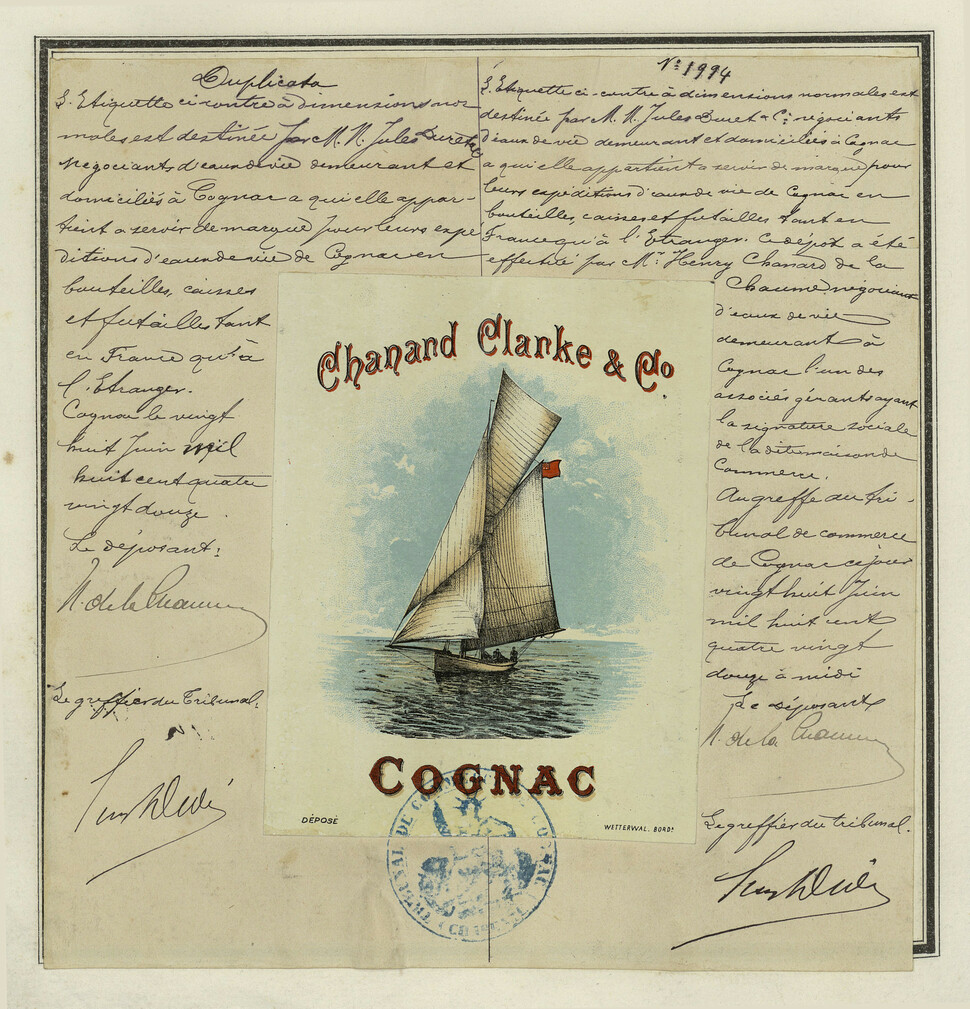 Duplicata
L'Etiquette ci-contre à dimensions nor
males est destinée par M. N. Jules Duret & Cie
Negociants d'eaux de vie demeurant et
domiciliés à Cognac a qui elle appar-
tient a servir de marque pour leurs expé
ditions d'eaux de vie de Cognac en
bouteilles, caisses
et futailles tant
en France qu'à
l'Etranger.
Cognac le vingt
huit Juin mil
huit cent quatre
vingt douze.
Le déposant:
H. de la Chaume
Le greffier du Tribunal:
No 1994
L'Etiquette ci-contre à dimensions normales est
destinée par M. N. Jules Duret & Cie négociants
d'eaux de vie demeurant et domiciliés à Cognac
a qui elle appartient a servir de marque pour
leurs expéditions d'eaux de vie de Cognac en
bouteilles, caisses et futailles tant en
France qu'à l'Etranger. Ce dépôt a été
effectué par Mr Henry Chanard de la
Chaume négociant
d'eaux de vie
demeurant à
Cognac l'un des
associés gérants ayant
la signature sociale
de la dite maison de
Commerce.
Au greffe du Tri-
bunal de commerce
de Cognac ce jour
vingt huit Juin
mil huit cent
quatre vingt
douze à midi
Le déposant
H. de la Chaume
Le greffier du tribunal.
Chanard Clarke & Co
COGNAC
DÉPOSÉ
WETTERWAL. BORDX
TRIBUNAL DE COMMERCE
COGNAC